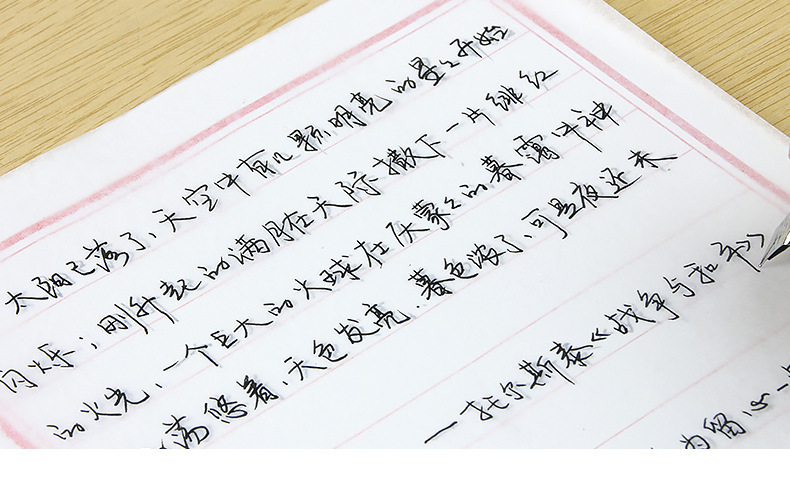 太阳已落了、天空中有几颗明亮的星之开始
闪烁；刚升起的满月在天际撒下一片绯红
的火光、一个巨大的火球在灰蒙之的暮霭中神
荡悠着、天色发亮．暮色浓了、可是夜还未
—托尔斯泰《战争与和平》
为留心一